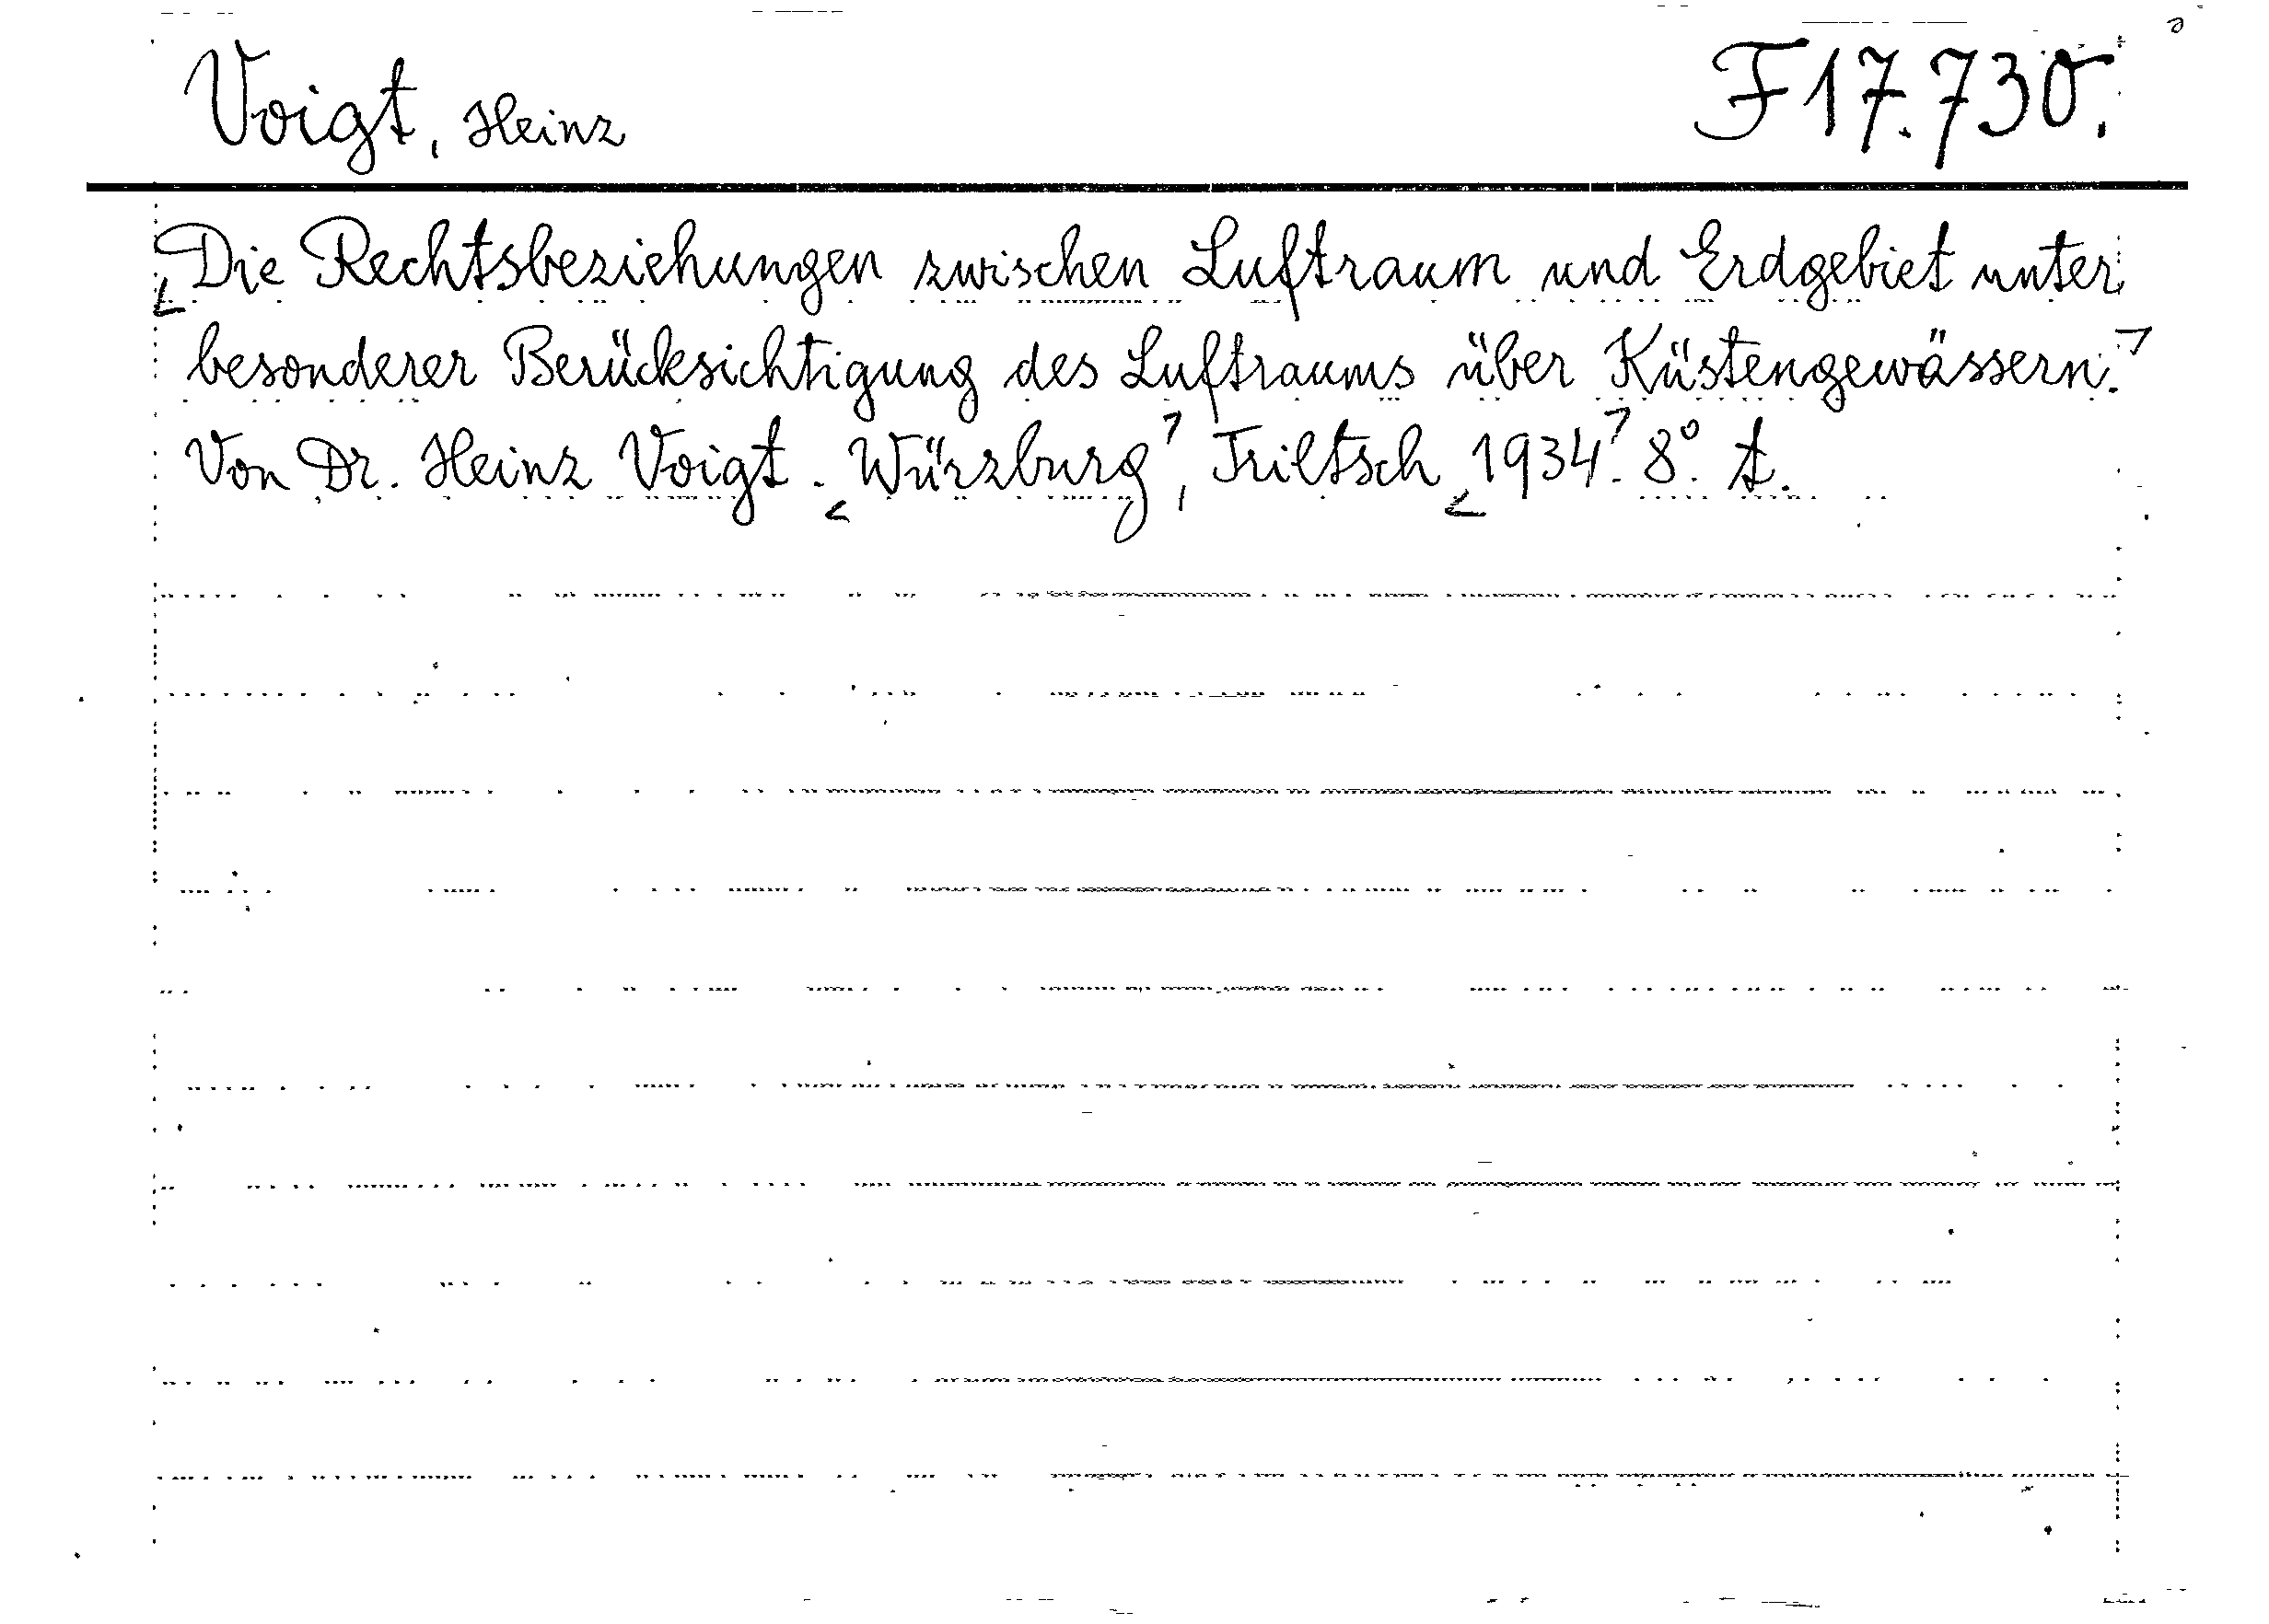 Voigt, Heinz
F 17.730.
Die Rechtsbeziehungen zwischen Luftraum und Erdgebiet unter
besonderer Berücksichtigung des Luftraums über Küstengewässern.
Von Dr. Heinz Voigt. Würzburg, Triltsch 1934. 8°.